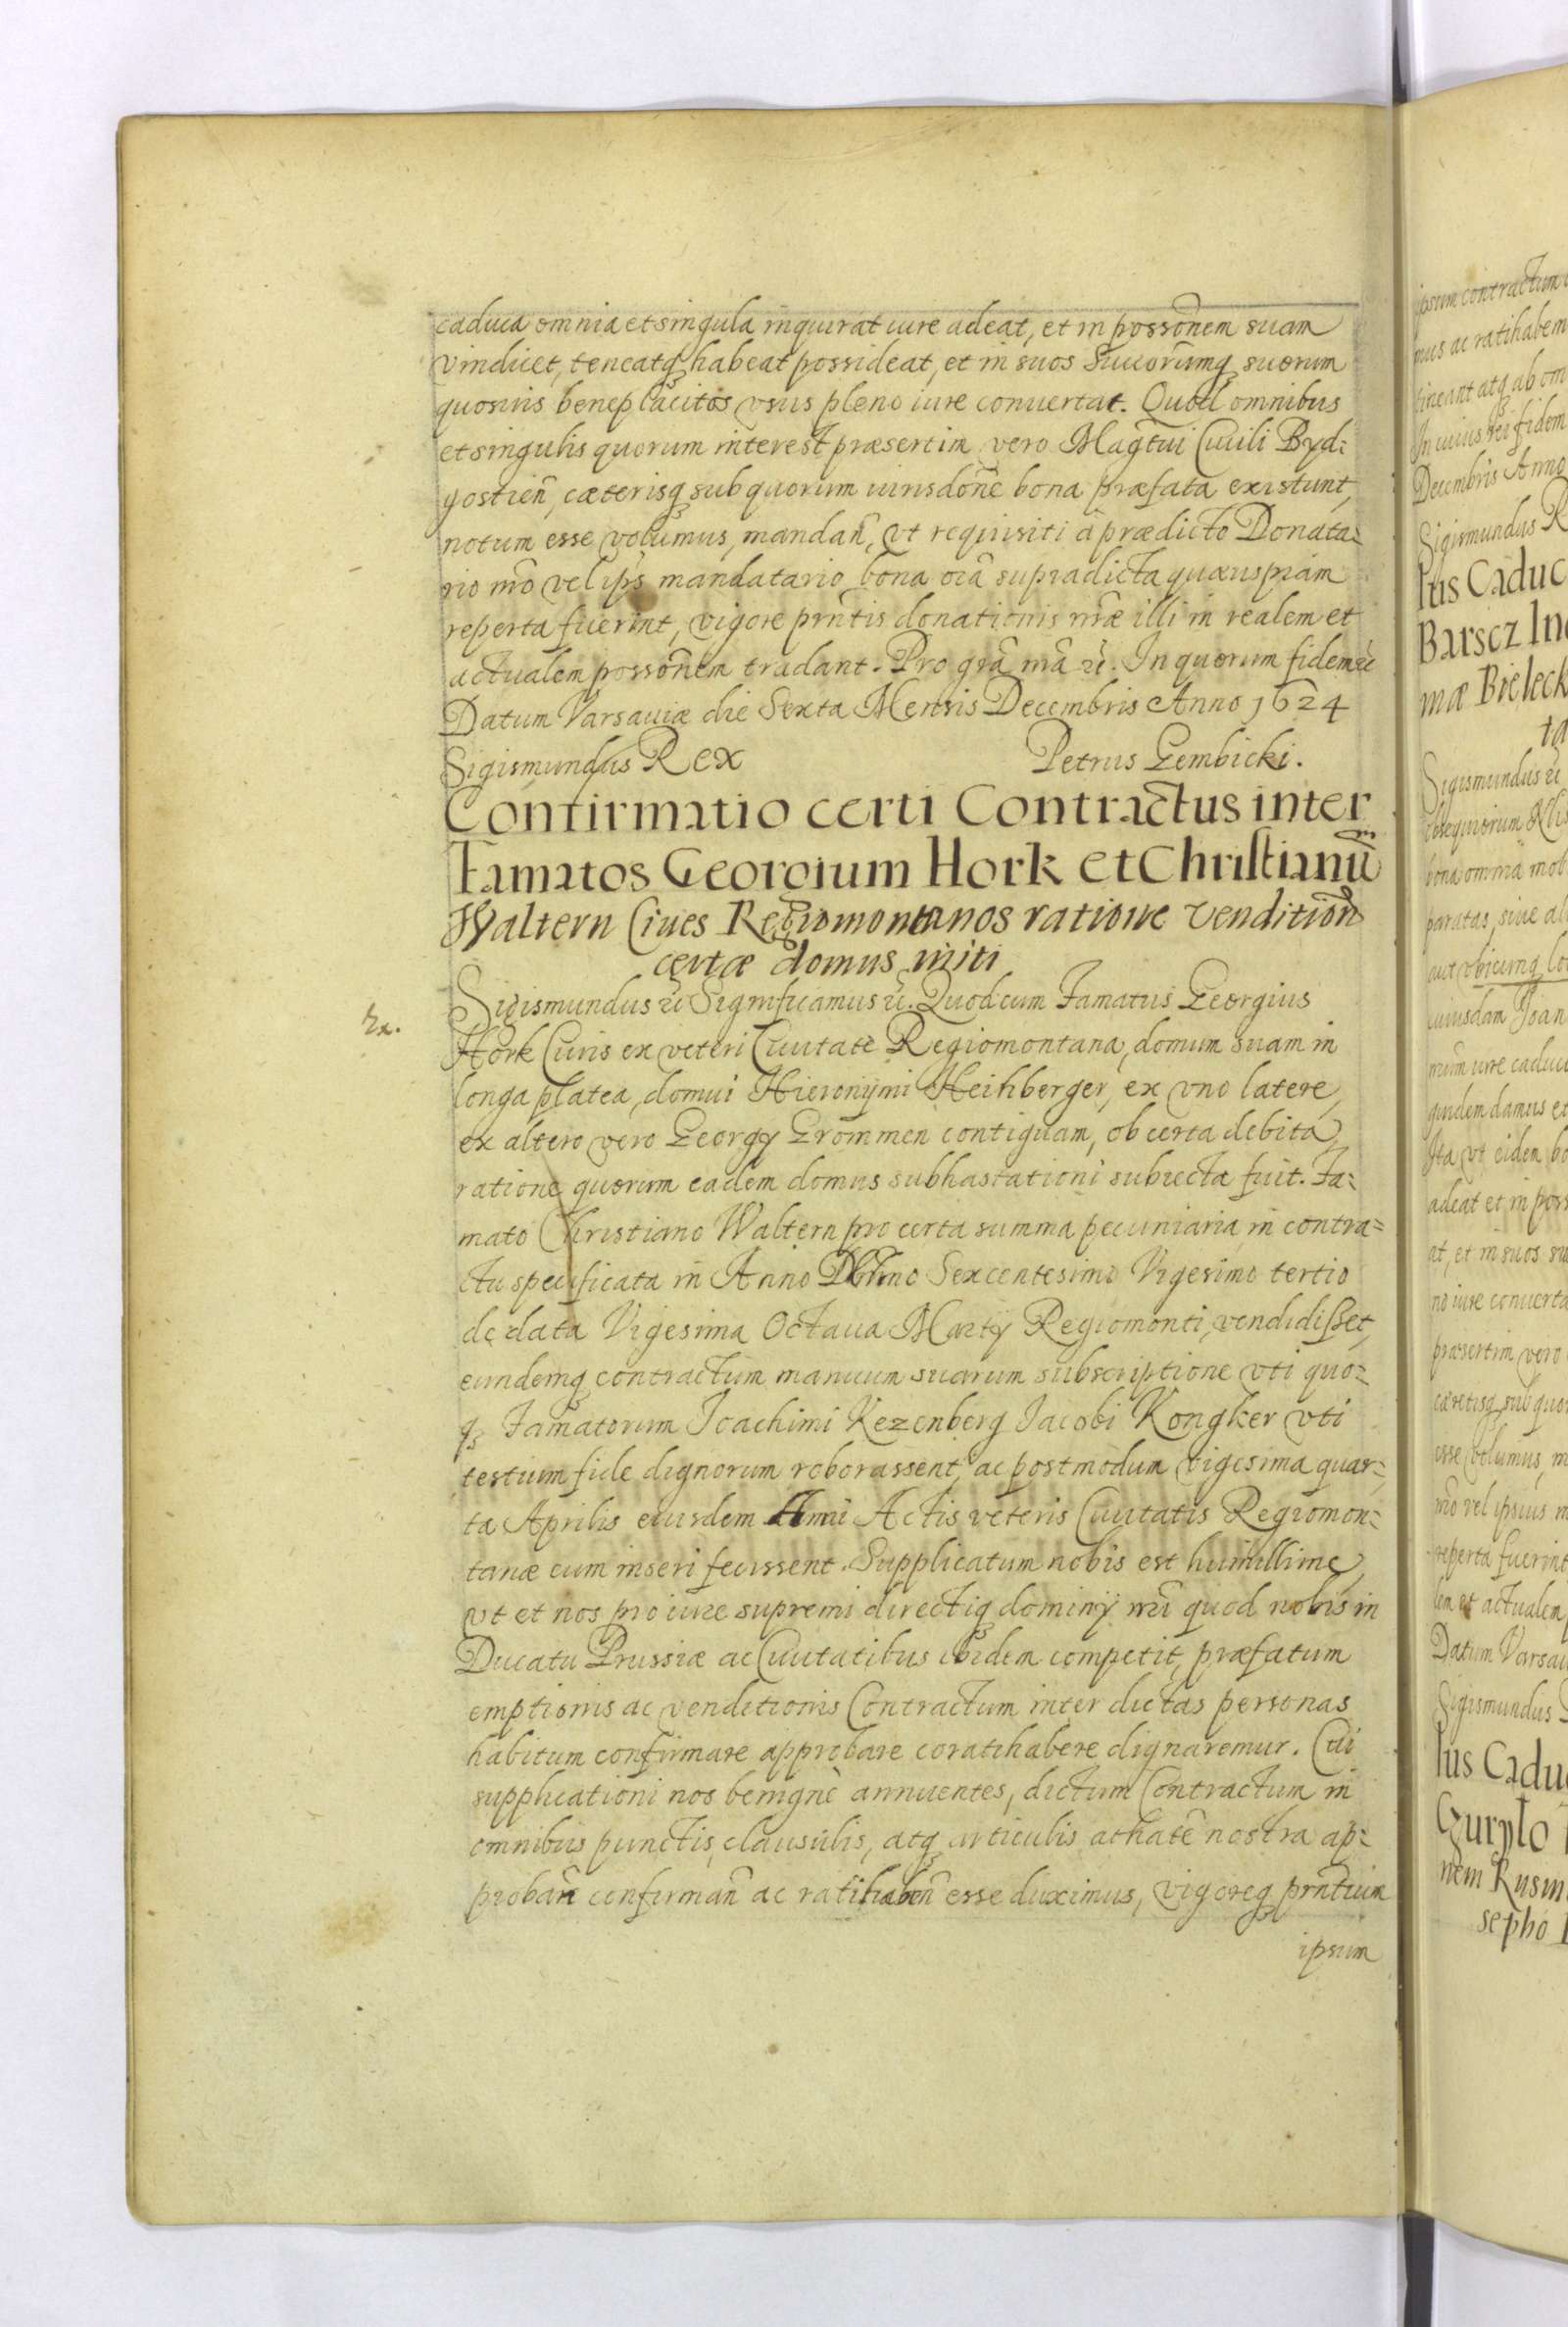 caduca omnia et singula inquirat iure adeat, et in possoñem suam
vindicet, teneatq habeat possideat, et in suos Succorumq suorum
quosuis beneplacitos vsus pleno iure conuertat. Quod omnibus
et singulis quorum interest præsertim vero Magt̃ui Ciuili Byd=
gostieñ, cæterisq sub quorum iurisdoñe bona præfata existunt,
notum esse volumus, mandañ, vt requisiti à prædicto Donata=
rio nr̃o vel ips̃ mandatario bona oĩa supradicta quæuspiam
reperta fuerint, vigore prñtis donationis nr̃æ illi in realem et
actualem possoñem tradant. Pro grã nr̃a &c̃. In quorum fidem &c̃
Datum Varsauiæ die Sexta Mensis Decembris Anno 1624
Sigismundus Rex Petrus Gembicki.
Confirmatio certi Contractus inter
Famatos Georgium Hork et Christianũ
Waltern Ciues Regiomontanos ratione venditioñ
certæ domus initi
Sigismundus &c̃ Significamus &c̃. Quod cum Famatus Georgius
Hork Ciuis ex veteri Ciuitate Regiomontana, domum suam in
longa platea, domui Hieronymi Heihberger, ex vno latere,
ex altero vero Georgy Grommen contiguam, ob certa debita,
ratione quorum eadem domus subhastationi subiecta fuit. Fa=
mato Christiano Waltern pro certa summa pecuniaria in contra=
ctu specificata in Anno Sexcentesimo Vigesimo tertio
de data Vigesima Octaua Martÿ Regiomonti, vendidisset,
eundemq contractum manuum suarum subscriptione vti quo=
q Famatorum Joachimi Kezenberg Jacobi Kongker vti
testium fide dignorum roborassent, ac postmodum vigesima quar=
ta Aprilis eiusdem Anni Actis veteris Ciuitatis Regiomon=
tanæ eum inseri fecissent. Supplicatum nobis est humillime,
vt et nos pro iure supremi directiq dominÿ nr̃i quod nobis in
Ducatu Prussiæ ac Ciuitatibus ibidem competit, præfatum
emptionis ac venditionis Contractum inter dictas personas
habitum confirmare approbare coratihabere dignaremur. Cui
supplicationi nos benignè annuentes, dictum Contractum in
omnibus punctis, clausulis, atq articulis athatẽ nostra ap=
probañ confirmañ ac ratihabeñ esse duximus, vigoreq prñtium
ipsum